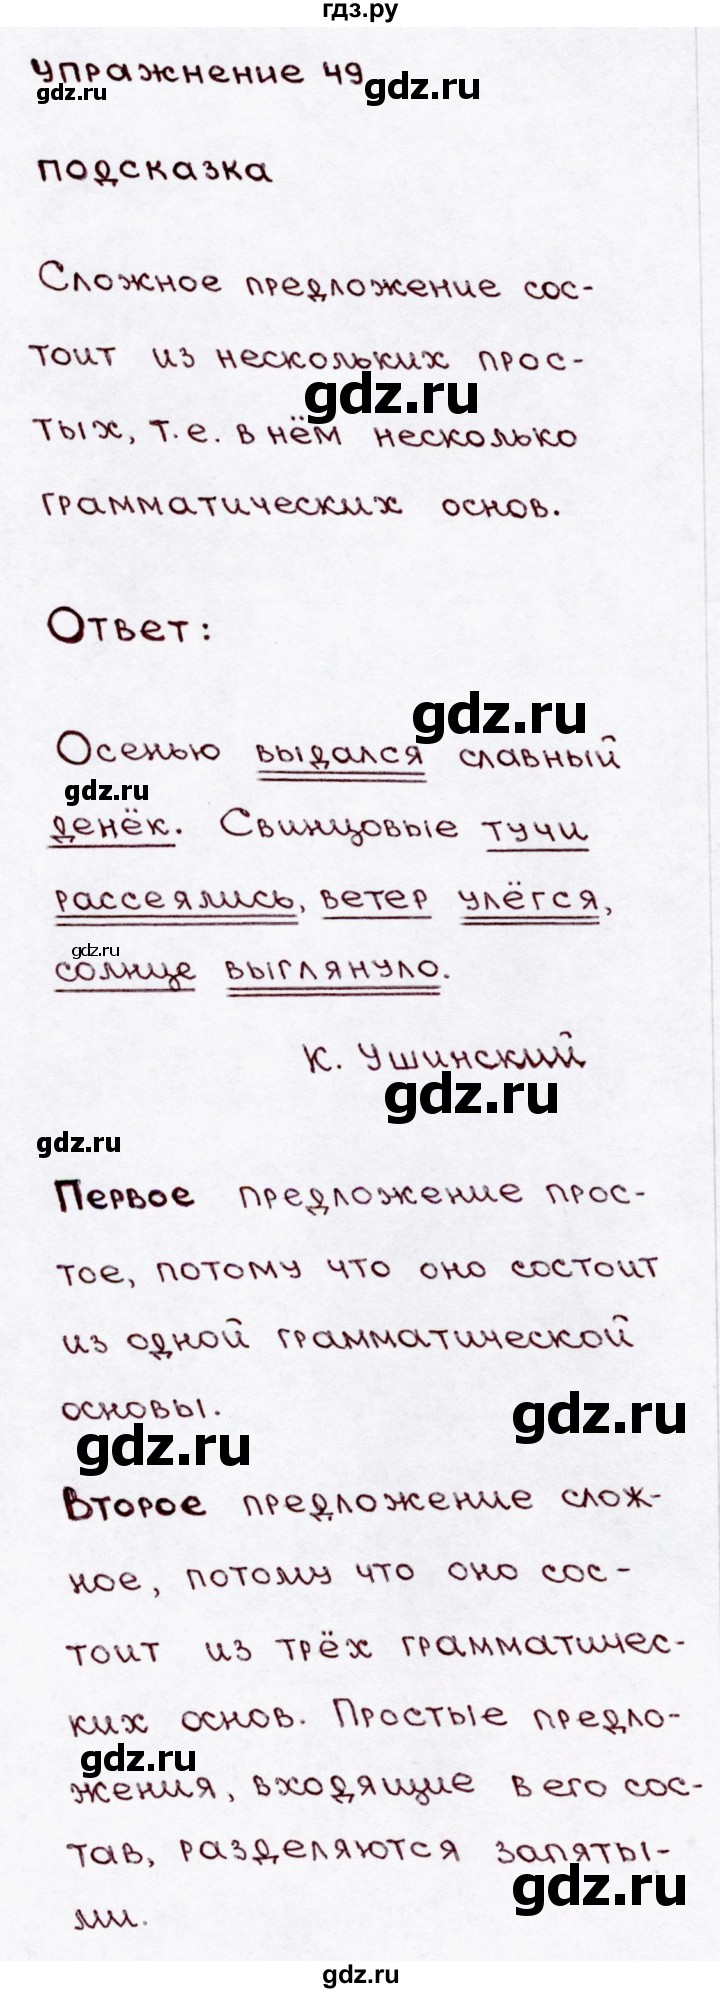 гдз.ру
Упражнение 49
gdz.ru
gdz.ru
подсказка
Сложное предложение сос-
тоит из нескольких прос-
gdz.ru
тых, т.е. в нём несколько
грамматических основ.
Ответ:
gdz.ru
Осенью выдался славный
gdz.ru
денёк. Свинцовые тучи
рассеялись, ветер улёгся,
gdz.ru
солнце выглянуло.
К. Ушинский
gdz.ru
gdz.ru
Первое предложение прос-
тое, потому что оно состоит
из одной грамматической
основы.
gdz.ru
gdz.ru
Второе предложение слож-
ное, потому что оно сос-
тоит из трёх грамматичес-
ких основ. Простые предло-
gdz.ru
жения, входящие в его сос-
тав, разделяются запяты-
gdz.ru
ми.
gdz.ru